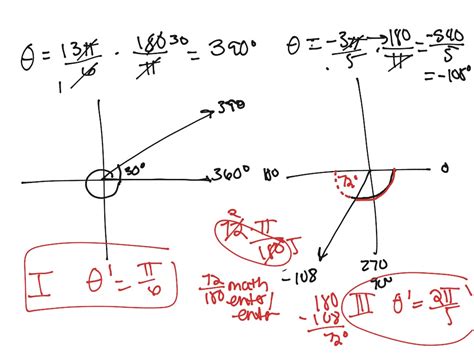 θ = 13π/6 · 180 30/π = 390°
1
θ = -3π/5 · 180/π = -540/5
= -108°
390
30°
360°
180
72°
0
-108
270
90
I θ' = π/6
2
72 · π/180 5
72/180 math
enter/
enter
180
-108
72°
III θ' = 2π/5